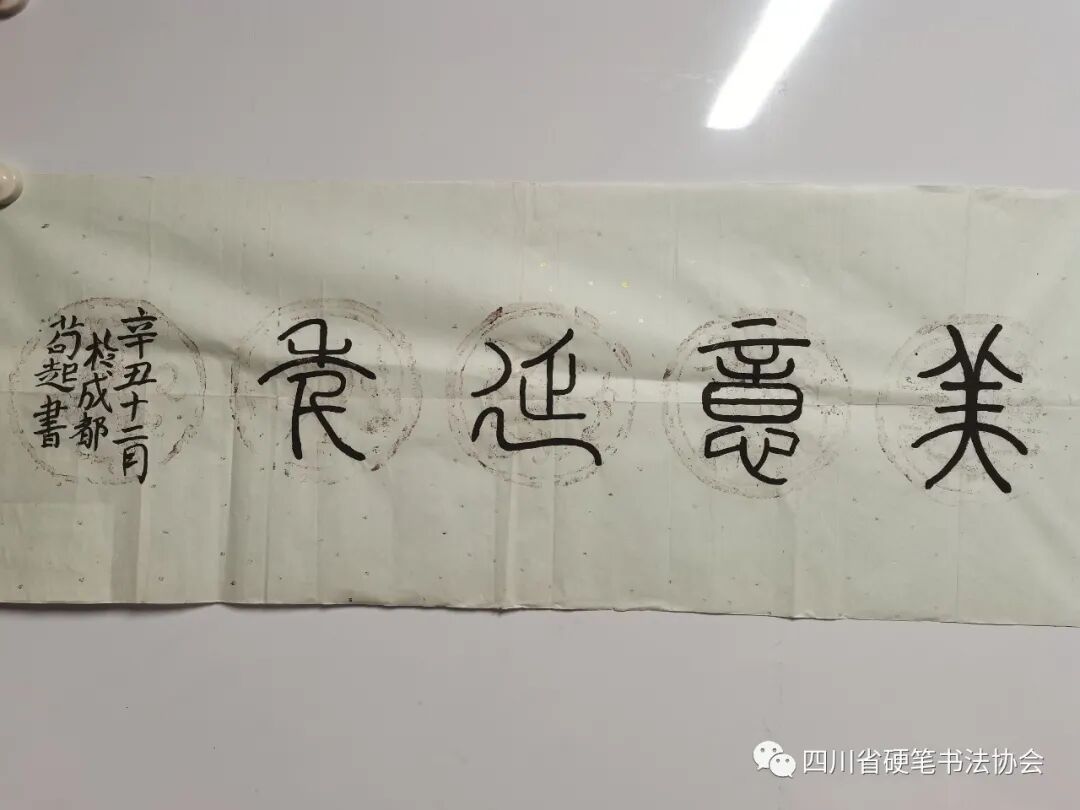 美意延年
辛丑十二月
於成都
荀起書
四川省硬笔书法协会